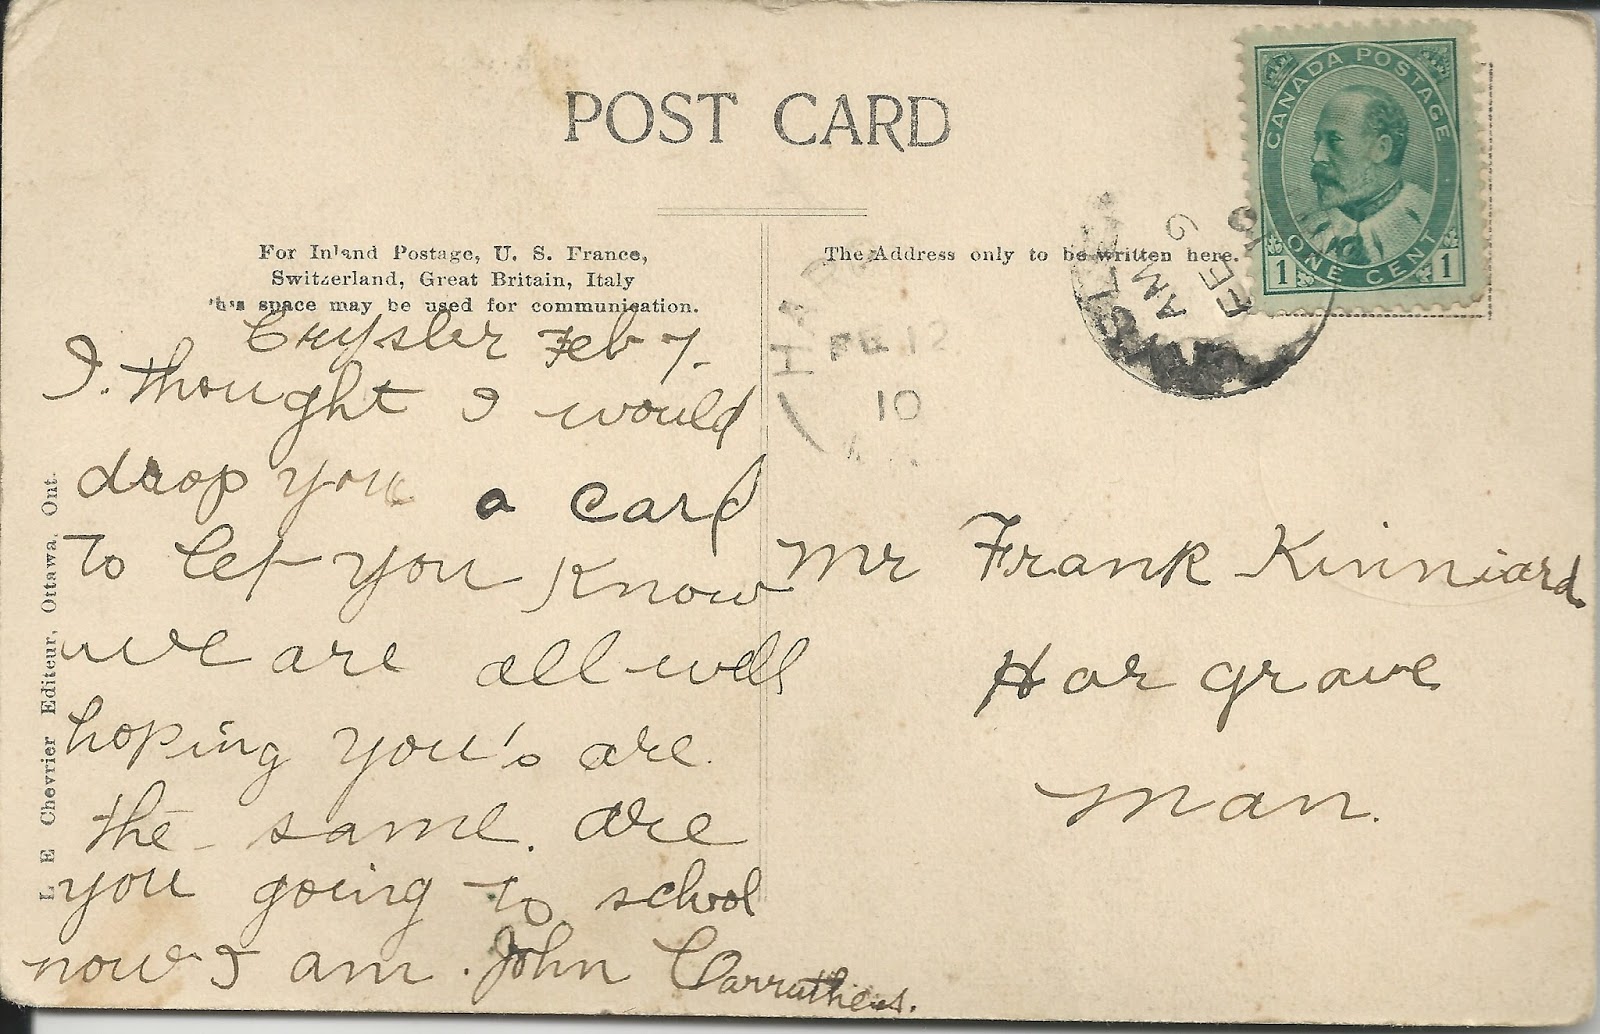 POST CARD
For Inland Postage, U. S. France,
Switzerland, Great Britain, Italy
This space may be used for communication.
The Address only to be written here.
CANADA POSTAGE
ONE CENT
1 1
AM
FE
HAR
FE 12
10
Crysler Feb 7.
I. thought I would
drop you a card
To let you know
we are all well
hoping you's are.
the same. are
you going to school
now I am. John Carruthers.
Mr Frank Kinniard
Hargrave
Man.
L E Chevrier Editeur, Ottawa. Ont.